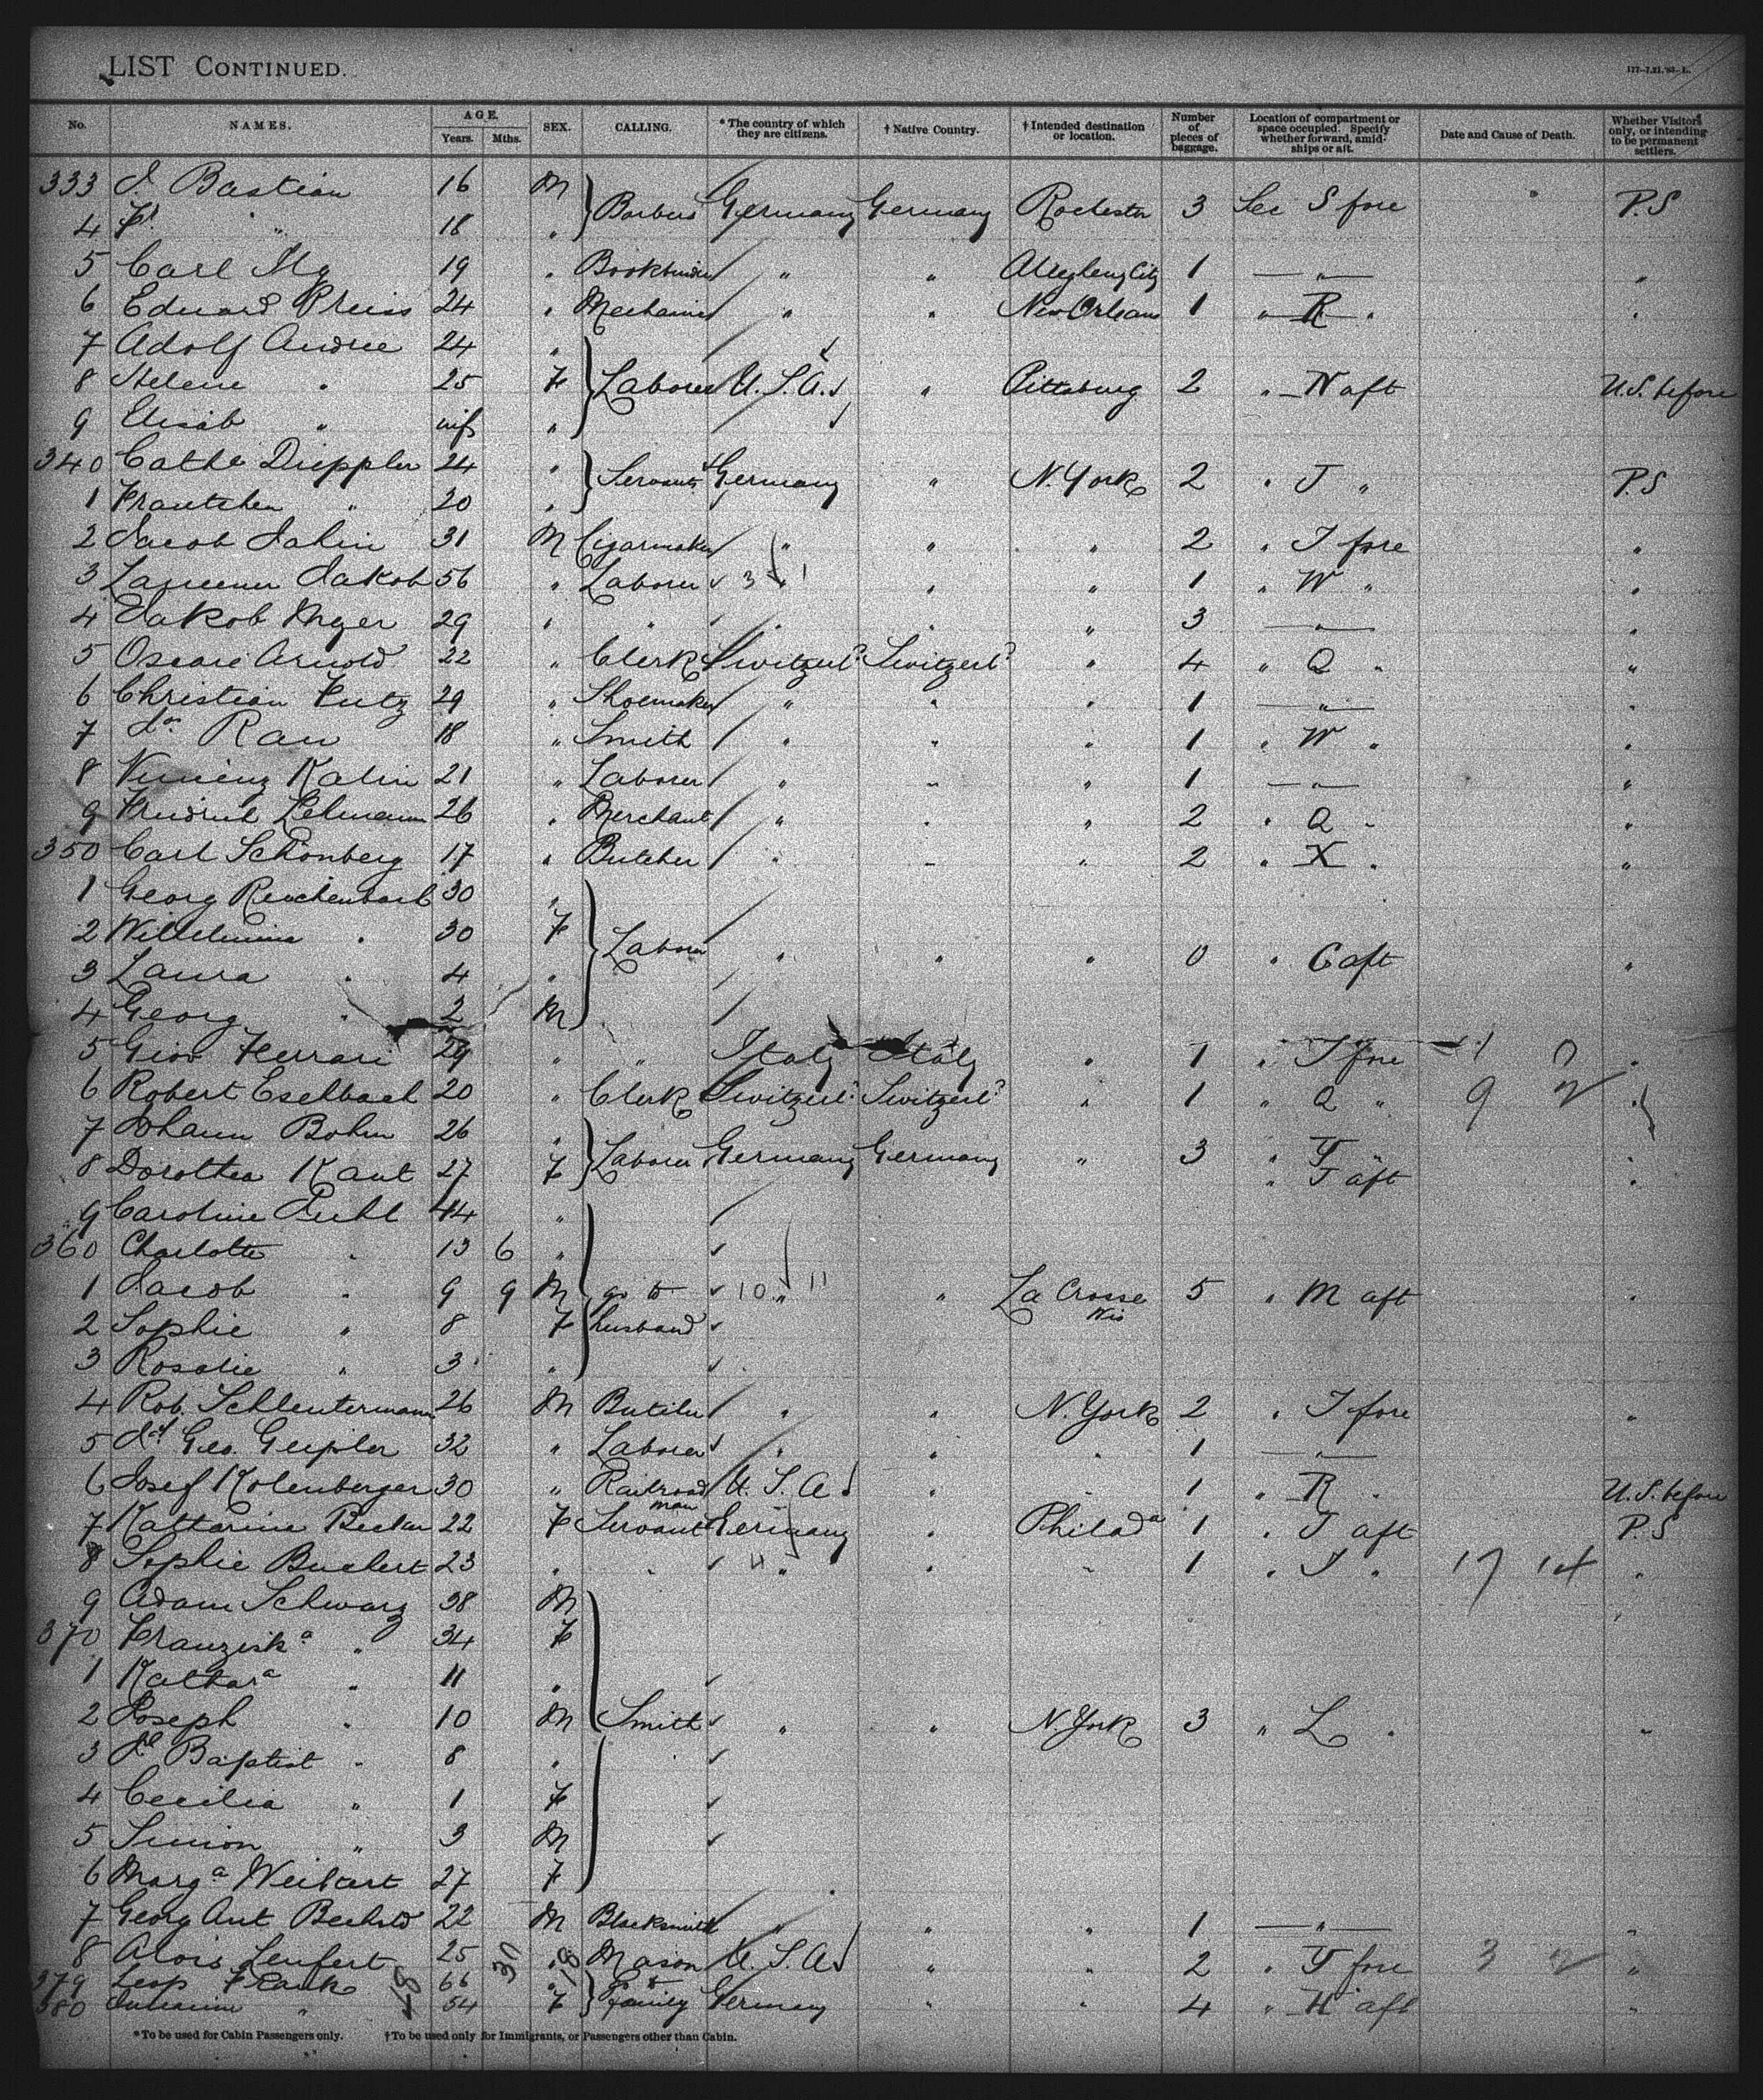 LIST CONTINUED.
No. NAMES. AGE. Years. Mths. SEX. CALLING. *The country of which they are citizens. †Native Country. †Intended destination or location. Number of pieces of baggage. Location of compartment or space occupied. Specify whether forward, amidships or aft. Date and Cause of Death. Whether Visitors only, or intending to be permanent settlers.
333 J. Bastian 16 M Barbers Germany Germany Rochester 3 Sec S fore P.S
4 Fr. " 18 "
5 Carl Ilg 19 " Bookbinder " " Allegheny City 1 " "
6 Eduard Preiss 24 " Mechanic " " New Orleans 1 " R " "
7 Adolf Andree 24 "
8 Helene " 25 F Laborer U.S.A. " Pittsburg 2 " N aft U.S. before
9 Elisab " inf "
340 Cathe Dieppler 24 " Servants Germany " N. York 2 " T " P.S
1 Frantchen " 20 "
2 Jacob Jahin 31 M Cigarmaker " " " 2 " T fore "
3 Jakob 56 " Laborer 3 " " " 1 " W " "
4 Jakob Myer 29 " " " " " 3 " "
5 Arnold 22 " Clerk Switzerld Switzerld " 4 " Q " "
6 Christian Futz 29 " Shoemaker " " " 1 " "
7 Rau 18 " Smith " " " 1 " W " "
8 Kalin 21 " Laborer " " " 1 " "
9 Friedrich Lehmann 26 " Merchant " " " 2 " Q " "
350 Carl Schönberg 17 " Butcher " " " 2 " X " "
1 Georg Reichenbach 30 "
2 Wilhelmina " 30 F Labour " " " 0 " C aft "
3 Laura " 4 "
4 Georg " 2 M
5 Giov Ferrari 29 " " Italy Italy " 1 " T fore "
6 Robert Eschbach 20 " Clerk Switzerld Switzerld " 1 " Q " 9 2 "
7 Johann Bohm 26 " Laborer Germany Germany " 3 " T " "
8 Dorothea Kant 27 F " T aft "
9 Caroline Puhl 44 "
360 Charlotte " 13 6 "
1 Jacob " 9 9 M go to 10 " 11 " La Crosse Wis 5 " M aft "
2 Sophie " 8 F husband
3 Rosalie " 3 "
4 Rob. Schleutermann 26 M Butcher " " N. York 2 " T fore "
5 Geo. Geipler 32 " Laborer " " " 1 "
6 Josef Kolenberger 30 " Railroad man U.S.A. " " 1 " R " U.S. before
7 Katharine Becker 22 F Servant Germany " Philada 1 " T aft P.S
8 Sophie Buchert 23 " " 4 " " " 1 " T " 17 14 "
9 Adam Schwarz 38 M
370 Franziska " 34 F
1 Kathara " 11 "
2 Joseph " 10 M Smith " " N. York 3 " L " "
3 Baptist " 8 "
4 Cecilia " 1 F
5 Simon " 3 M
6 Marga Weikert 27 F
7 Georg Ant Bechold 22 M Blacksmith " " " 1 " "
8 Alois Leufert 25 " Mason U.S.A. " " 2 " T fore 3 2 "
379 Leop Frank 66 " Family Germany " " 4 " H aft "
380 " 54 F
*To be used for Cabin Passengers only. †To be used only for Immigrants, or Passengers other than Cabin.